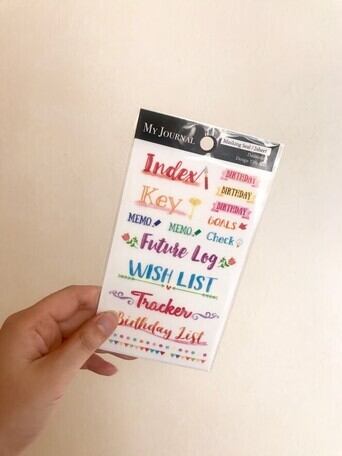 MY JOURNAL
Masking Seal / Label
Index
BIRTHDAY
Key
BIRTHDAY
BIRTHDAY
MEMO
MEMO
GOALS
Check
Future Log
WISH LIST
Tracker
Birthday List